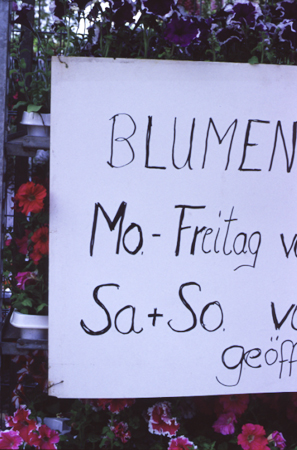 BLUMEN
Mo.- Freitag vo
Sa+So. vo
geöff